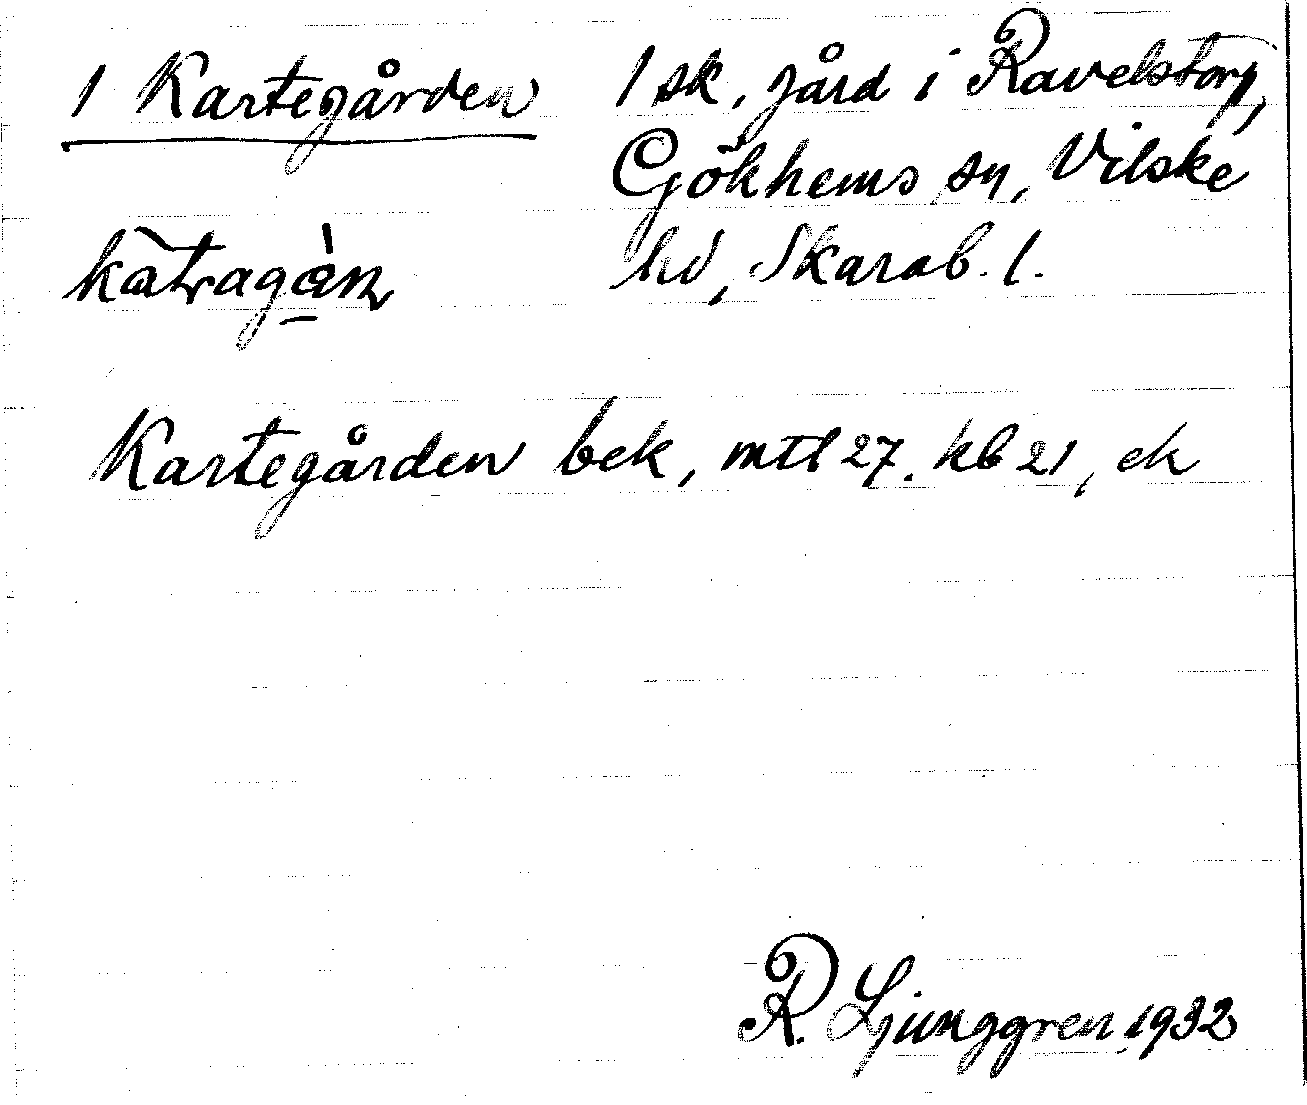 1 Kartegården 1 sk. gård i Ravelstorp,
Gökhems sn, Vilske
hd, Skarab. l.
Kartegården bek, mtl 27. kb 21, ek
R. Ljunggren 1932